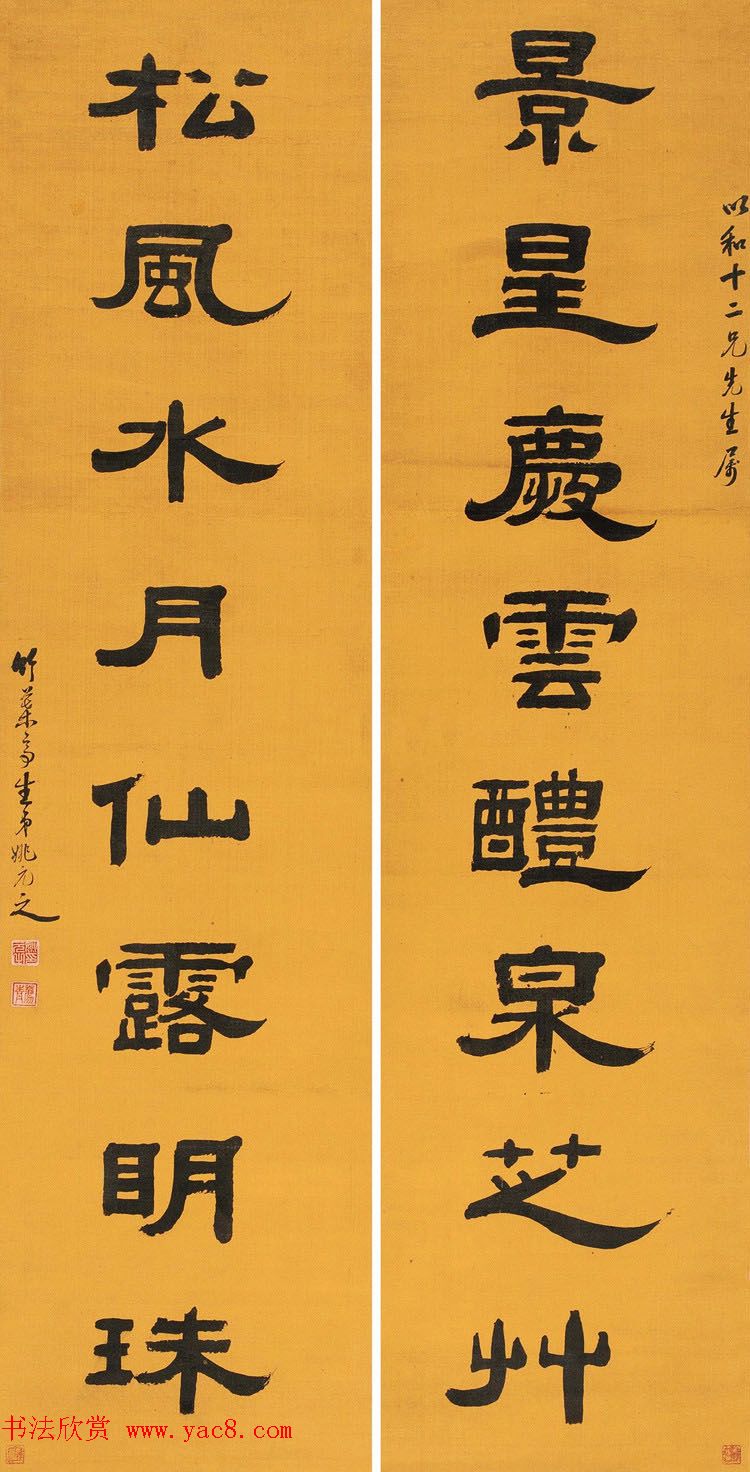 以和十二兄先生属
景星慶雲醴泉芝艸
松風水月仙露明珠
竹葉亭生弟姚元之
书法欣赏 www.yac8.com